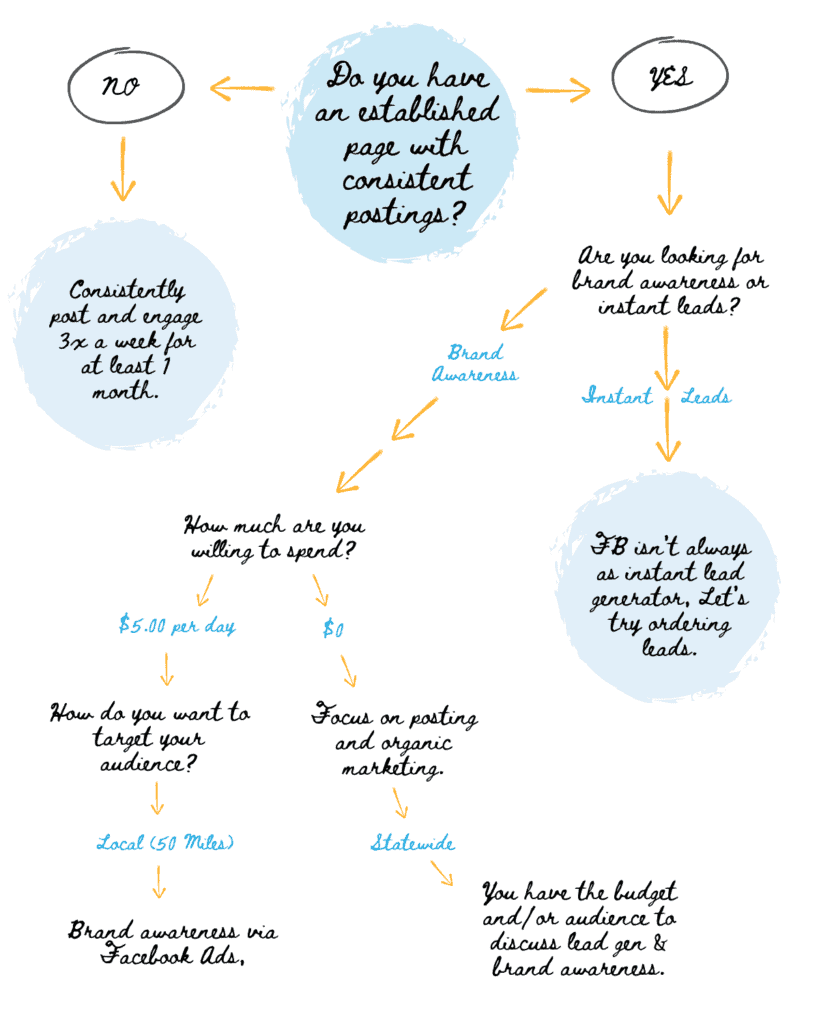 Do you have
an established
page with
consistent
postings?
NO
YES
Consistently
post and engage
3x a week for
at least 1
month.
Are you looking for
brand awareness or
instant leads?
Brand
Awareness
Instant Leads
How much are you
willing to spend?
FB isn't always
as instant lead
generator, Let's
try ordering
leads.
$5.00 per day
$0
How do you want to
target your
audience?
Focus on posting
and organic
marketing.
Local (50 Miles)
Statewide
Brand awareness via
Facebook Ads,
You have the budget
and/or audience to
discuss lead gen &
brand awareness.